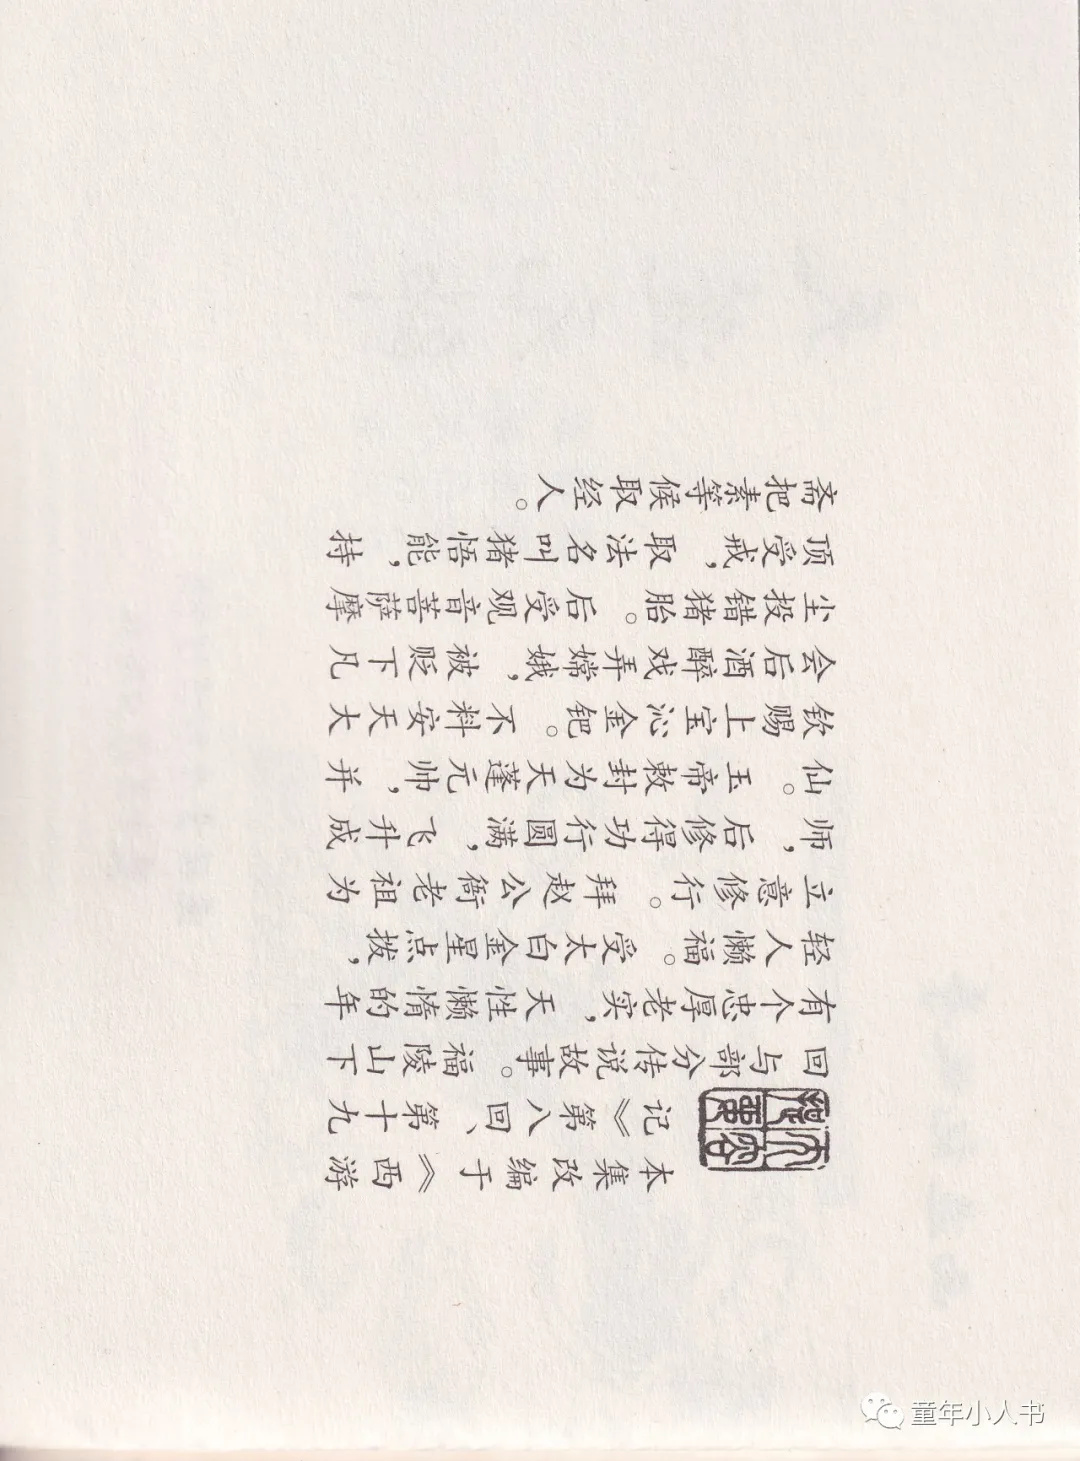 内容提要
本集改编于《西游
记》第八回、第十九
回与部分传说故事。福陵山下
有个忠厚老实，天性懒惰的年
轻人懒福。受太白金星点拨，
立意修行。拜赵公衙老祖为
师，后修得功行圆满，飞升成
仙。玉帝敕封为天蓬元帅，并
钦赐上宝沁金钯。不料安天大
会后酒醉戏弄嫦娥，被贬下凡
尘投错猪胎。后受观音菩萨摩
顶受戒，取法名叫猪悟能，持
斋把素等候取经人。
童年小人书